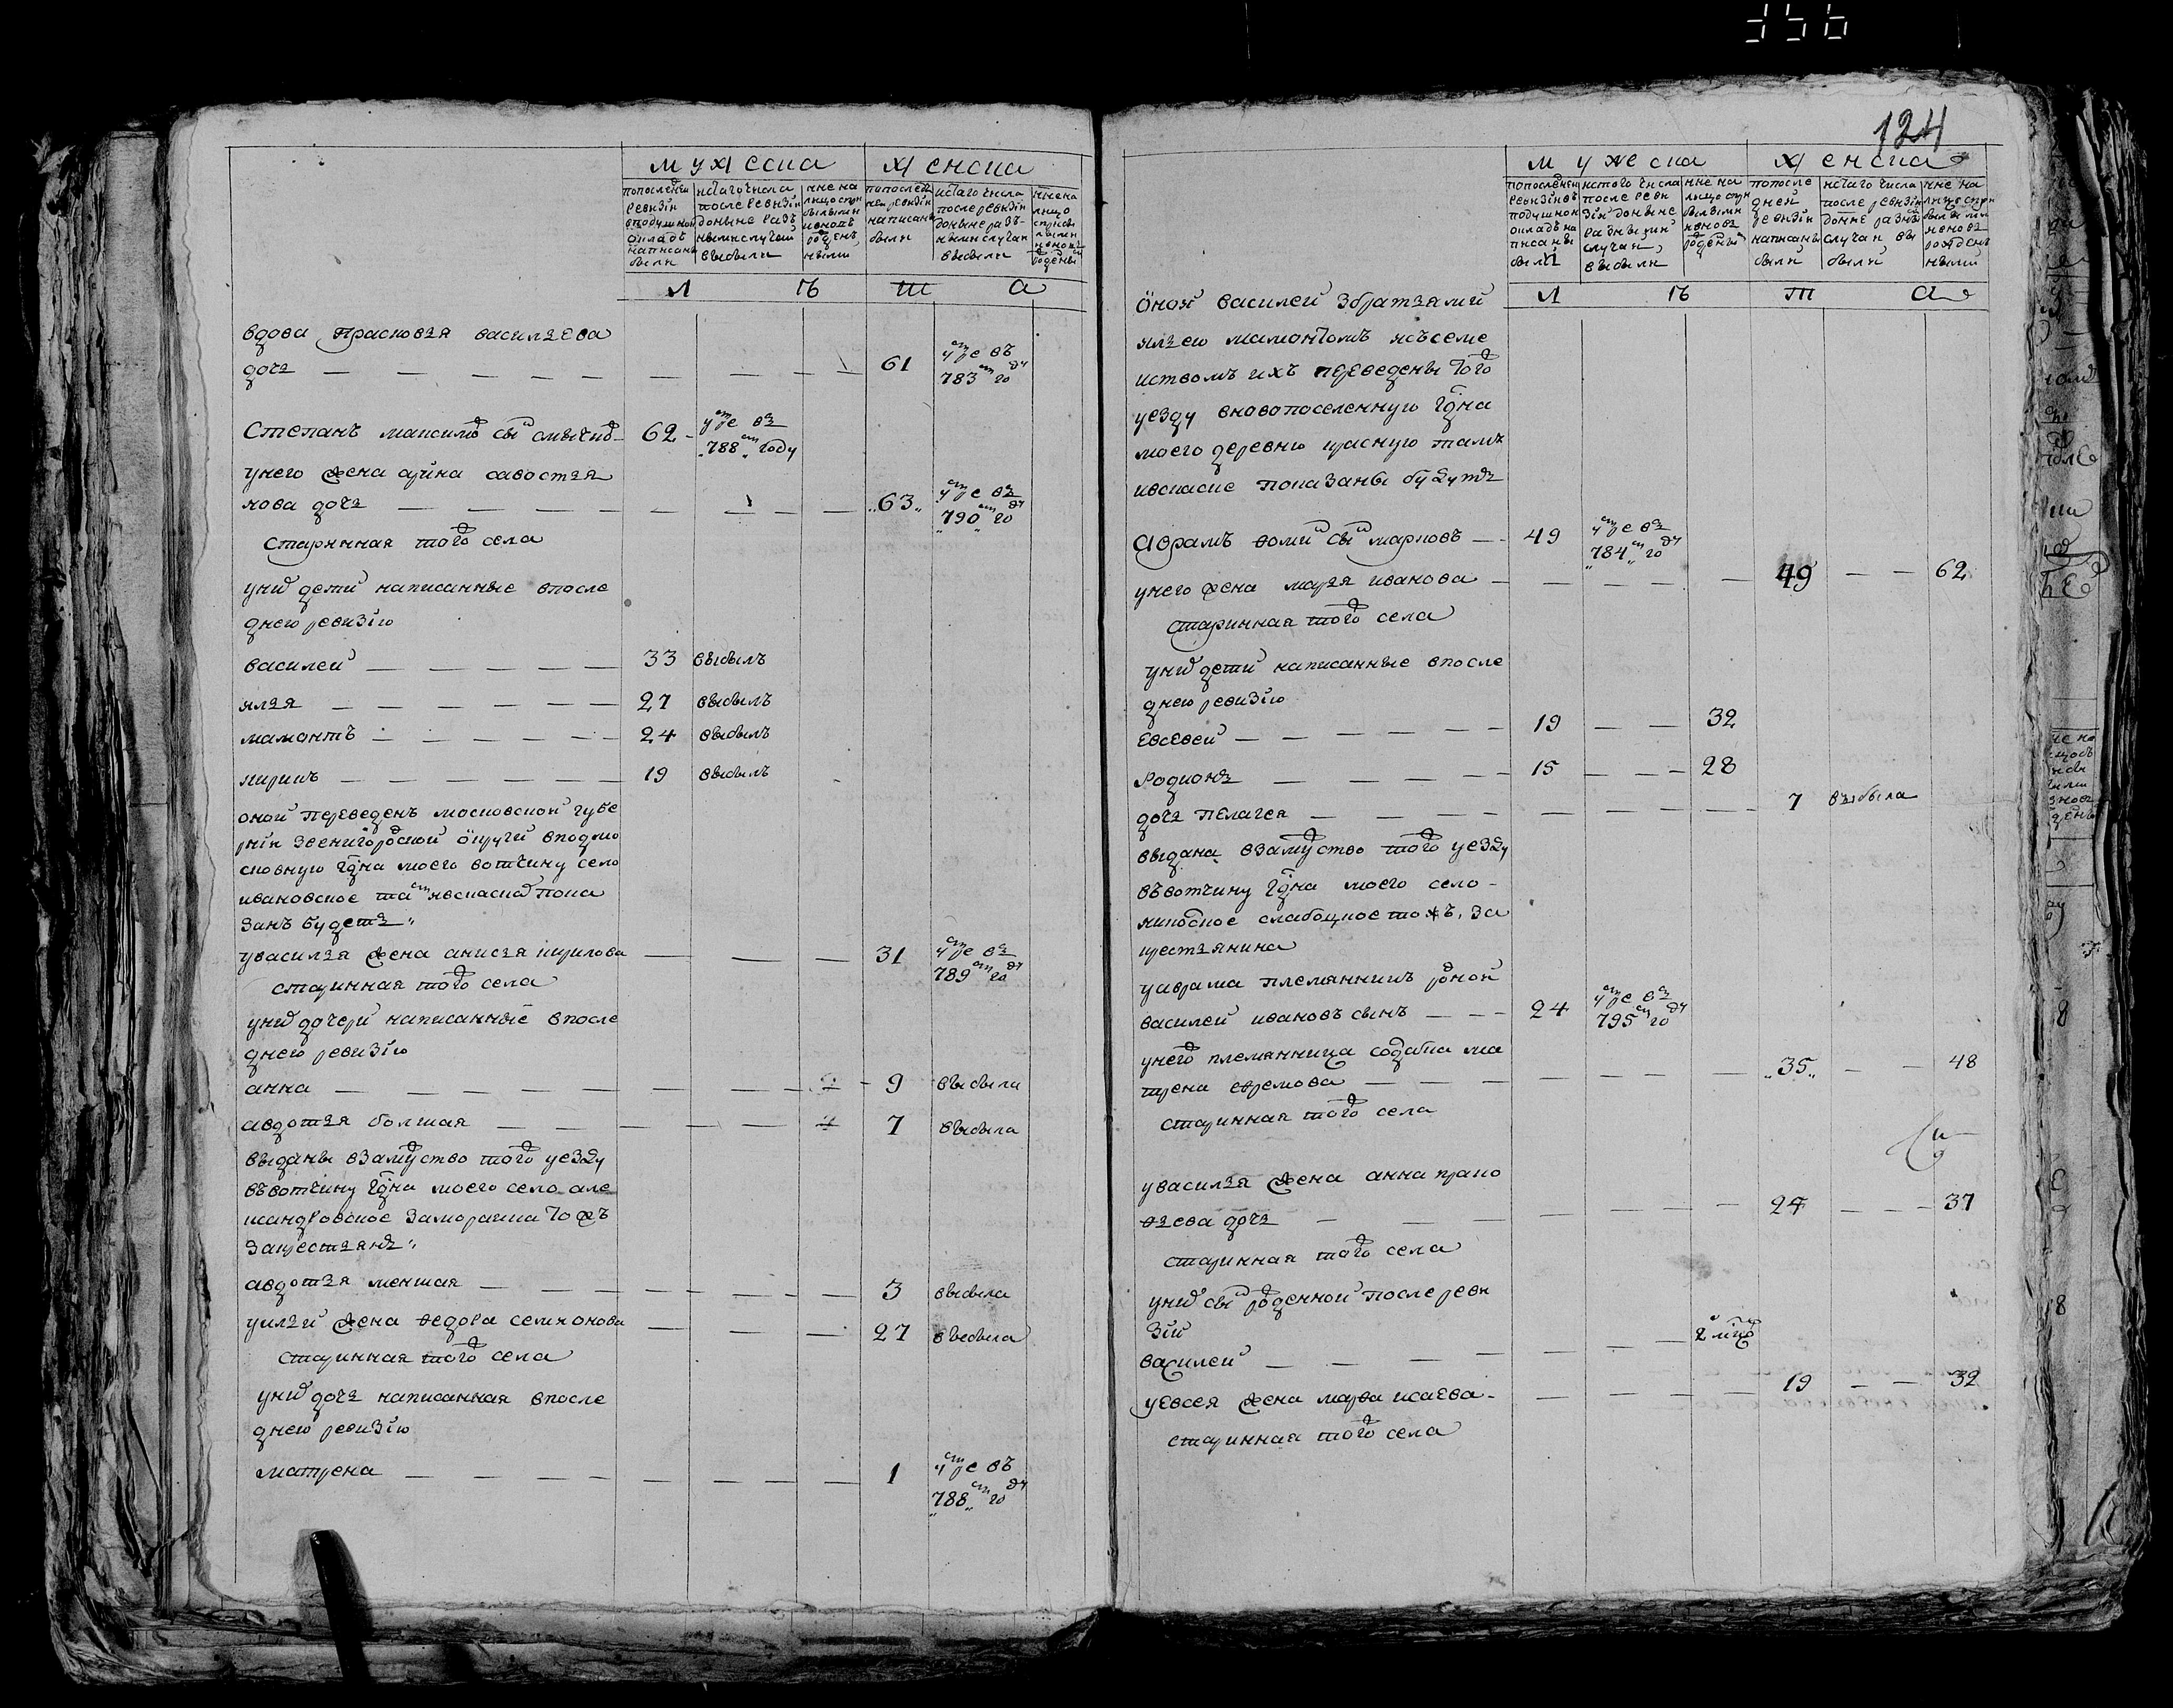 356
124
мужеска женска
попоследнеи ревизiи вподушном окладе написаны были
истого числа после ревизiи доныне разными случаи выбыли
ныне на лицо
попоследнеи ревизiи написаны были
истого числа после ревизiи доныне разными случаи выбыли
ныне на лицо
л ѣ т а
вдова прасковья васильева
дочь — — — — — — — — 61 умре въ 783м году
Степанъ максимовъ сынъ 62 умре въ 788м году
унего жена арина савостья
нова дочь — — — — — — — 63 умре въ 790м году
старинная того села
унихъ дети написанные впосле
днею ревизiю
василеи — — — — — 33 выбылъ
илья — — — — — — 27 выбылъ
мамонтъ — — — — — 24 выбылъ
кирикъ — — — — — 19 выбылъ
оной переведенъ московской губе
рнiи звенигородской округи вподмо
сковную гдна моего вотчину село
ивановское тамъ ивсказке пока
занъ будетъ
увасилья жена анисья кирилова — — — 31 умре въ 789м году
старинная того села
унихъ дочери написанные впосле
днею ревизiю
анна — — — — — — — 9 выбыла
авдотья болшая — — — — — 7 выбыла
выданы взамужство того уезду
въвотчину гдна моего село але
ксандровское заморайка тожъ
закрестьянъ
авдотья меншая — — — — — — 3 выбыла
уильи жена федора семионова — — — 27 выбыла
старинная того села
унихъ дочь написанная впосле
днею ревизiю
матрена — — — — — — — 1 умре въ 788м году
мужеска женска
попоследнеи ревизiи въ подушном окладе написаны были
истого числа после ревизiи доныне разными случаи выбыли
ныне на лицо
попоследнеи ревизiи написаны были
истого числа после ревизiи доныне разными случаи выбыли
ныне на лицо
л ѣ т а
оной василеи збратьями
ильею мамонтомъ исъсеме
иствомъ ихъ переведены того
уезду вновопоселенную гдна
моего деревню красную тамъ
ивскаске показаны будутъ
Аврамъ фоминъ сынъ марковъ — 49 умре въ 784м году
унего жена марья иванова — — — — — 49 — — 62
старинная того села
унихъ дети написанные впосле
днею ревизiю
Евсевеи — — — — — 19 — — 32
Родионъ — — — — — 15 — — 28
дочь пелагея — — — — — — — 7 выбыла
выдана взамужство того уезду
въвотчину гдна моего село
слабоцкое тожъ, за
крестьянина
уаврама племянникъ родной
василеи ивановъ сынъ — — — 24 умре въ 795м году
унего племянница солдатка ма
трена ефремова — — — — — — — 35 — — 48
старинная того села
увасилья жена анна проко
фьева дочь — — — — — — — 24 — — — 37
старинная того села
унихъ сынъ рожденной после реви
зiи
василеи — — — — — — — 2
уевсея жена марфа исаева — — — — — 19 — — 32
старинная того села